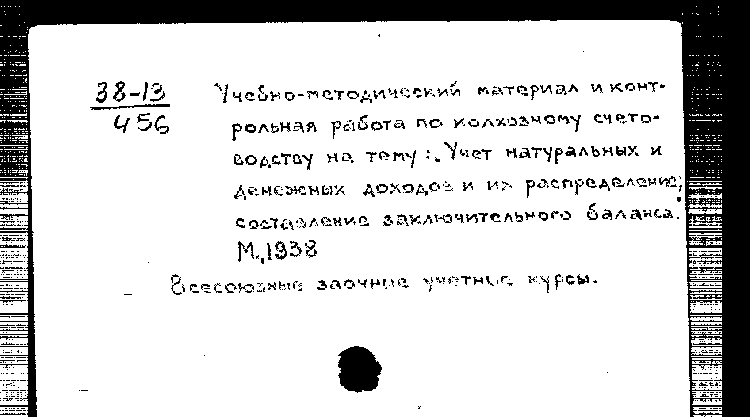 38-13 Учебно-методический материал и конт-
456 рольная работа по колхозному счето-
водству на тему: Учет натуральных и
денежных доходов и их распределение;
составление заключительного баланса.
М., 1938
Всесоюзные заочные учетные курсы.